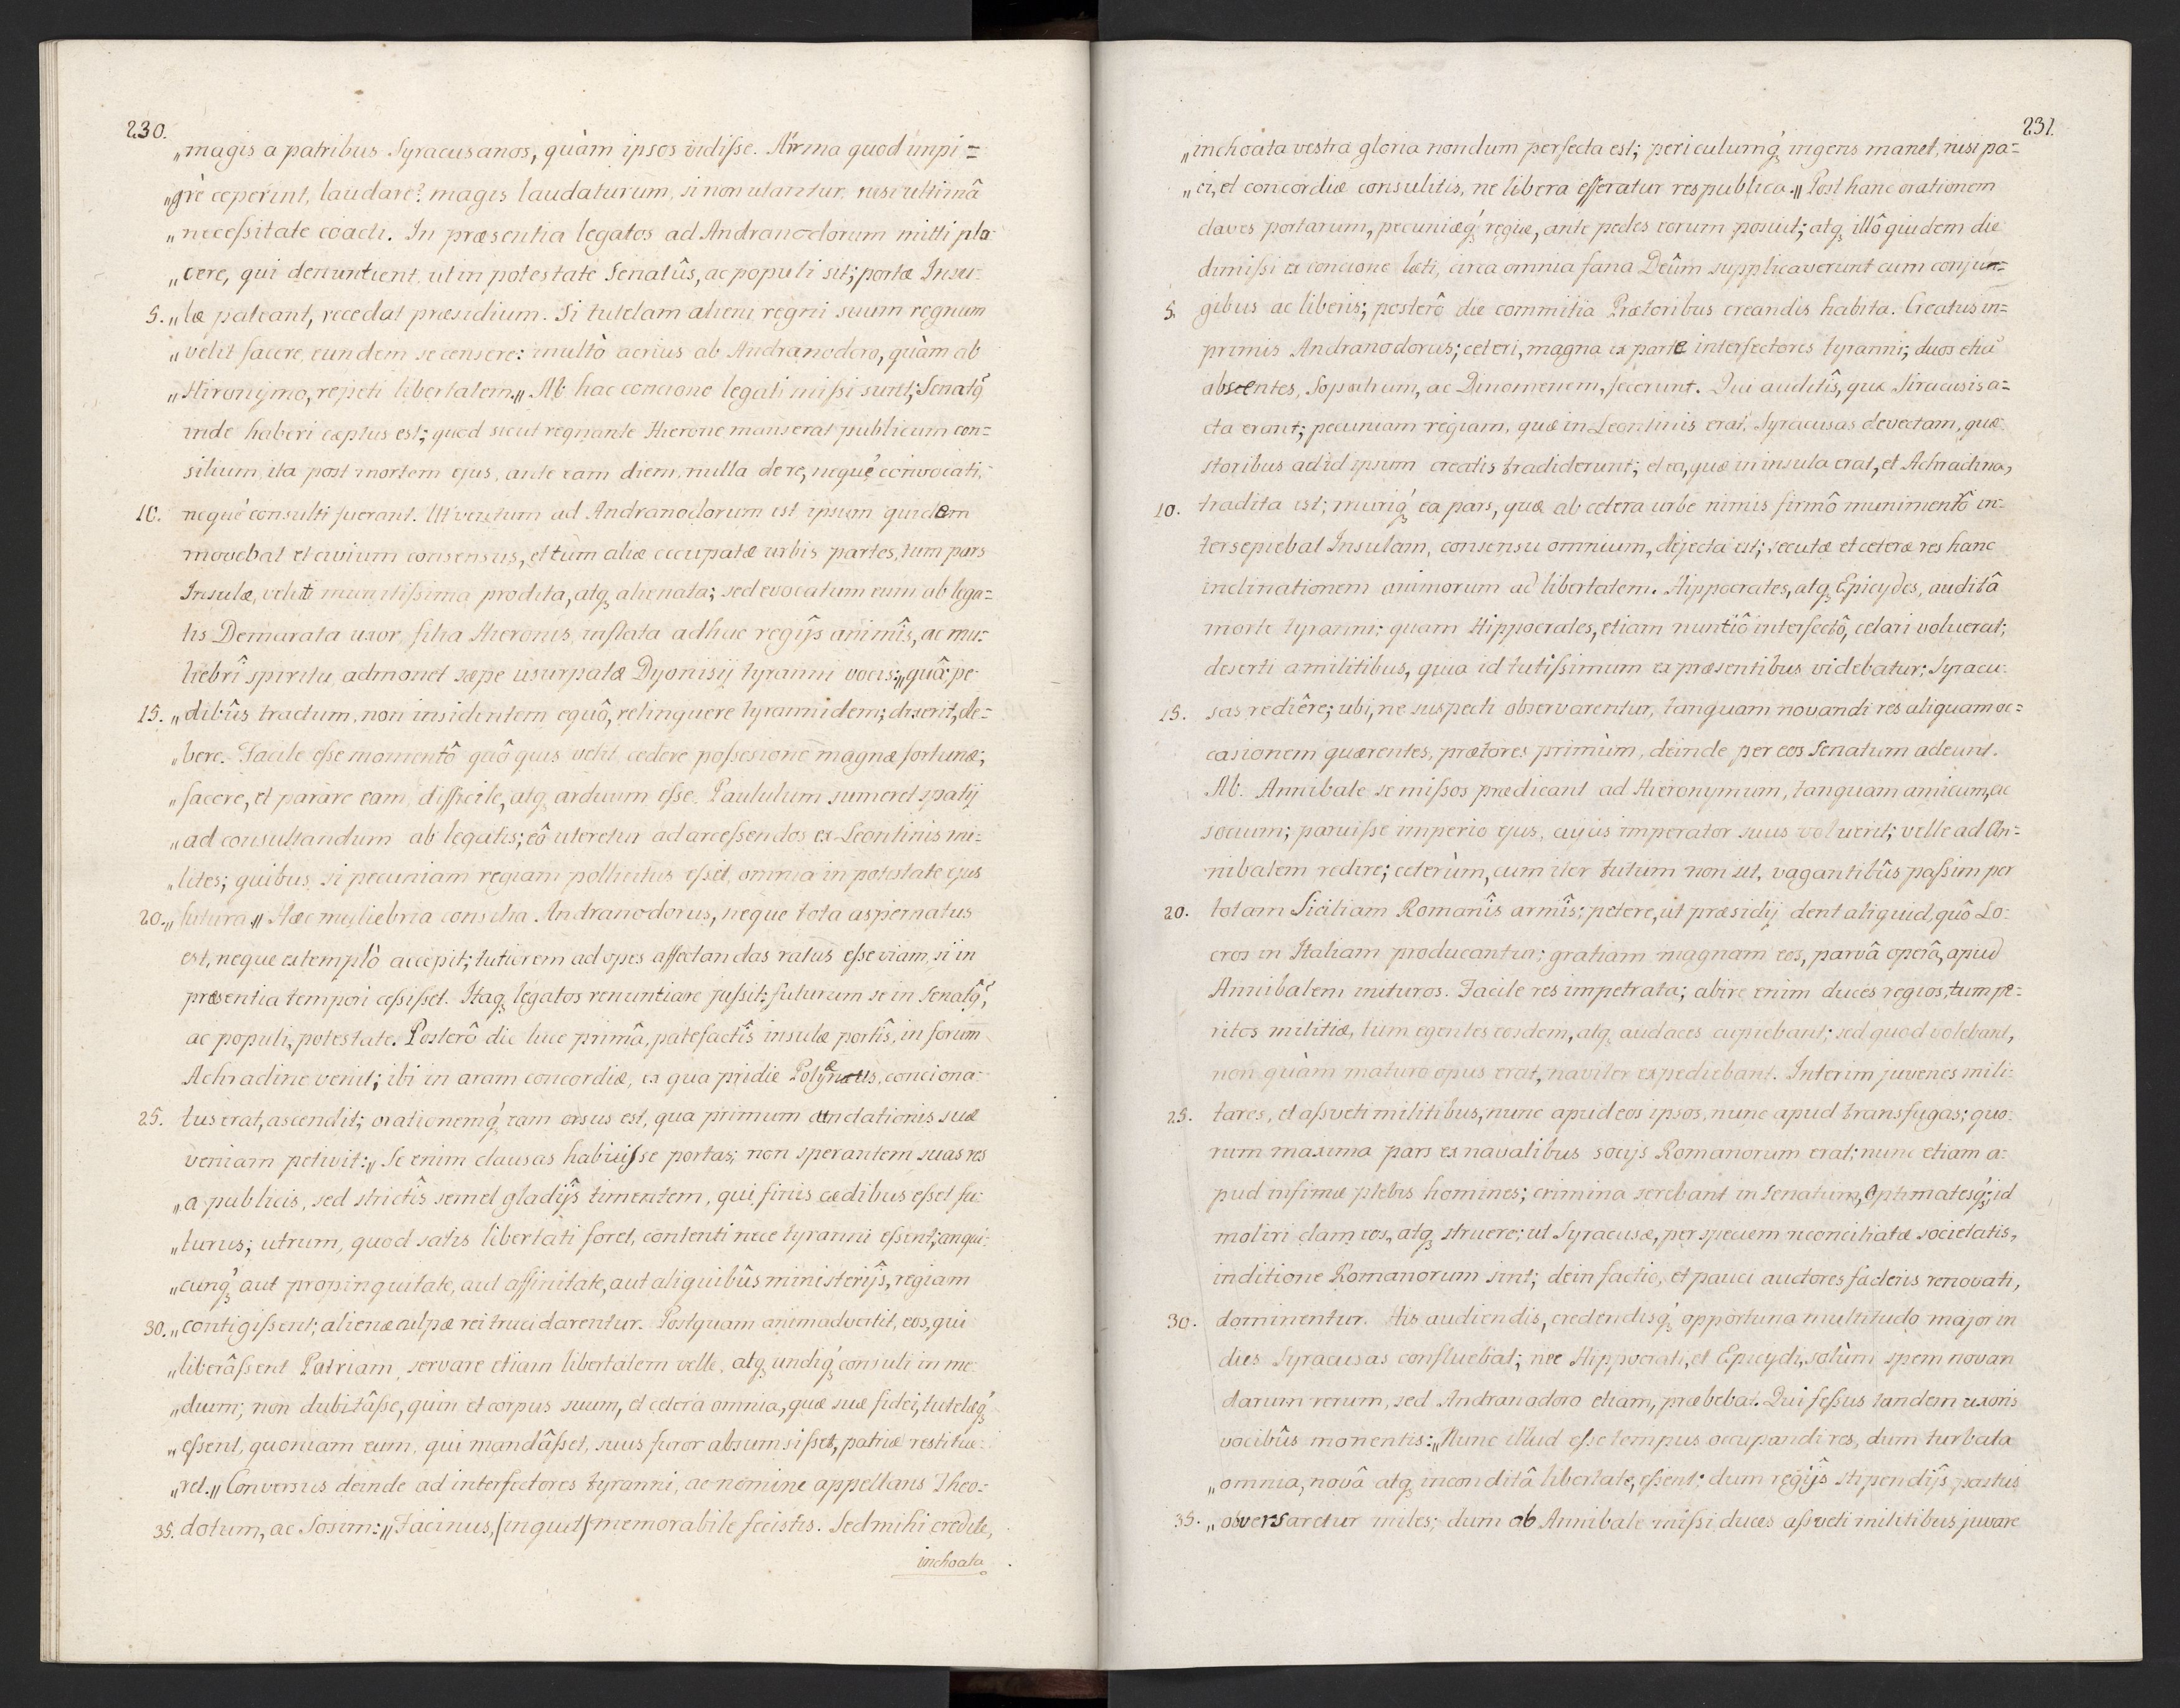 230.
„magis a patribus Syracusanos, quàm ipsos vidiſse. Arma quod impi=
„grè ceperint, laudare? magis laudaturum, si non utantur, nisi ultimâ
„neceſsitate coacti. In præsentia legatos ad Andranodorum mitti pla-
„cere, qui denuntient, ut in potestate Senatûs, ac populi sit; portæ Insu-
5. „læ pateant, recedat præsidium. Si tutelam alieni regni suum regnum
„velit facere, eundem se censere: multò acrius ab Andranodoro, quàm ab
„Hironymo, repeti libertatem.„ Ab hac concione legati miſsi sunt; Senatq́
inde haberi cæptus est; quod sicut regnante Hierone manserat publicum con=
silium, ita post mortem ejus, ante eam diem, nulla de re, nequè convocati,
10. nequè consulti fuerant. Ut ventum ad Andranodorum est ipsum quidem
movebat et civium consensus, et tùm aliæ occupatæ urbis partes, tum pars
Insulæ, velut munitiſsima prodita, atq; alienata; sed evocatum eum ab lega=
tis Demarata uxor, filia Hieronis, inflata adhuc regijs animîs, ac mu-
liebrî spiritu, admonet sæpe usurpatæ Dyonisij tyranni vocis:„ quâ pe-
15. „dibûs tractum, non insidentem equô, relinquere tyrannidem; dixerit, de=
„bere. Facile eſse momentô quô quis velit, cedere poſsesione magnæ fortunæ;
„facere, et parare eam, difficile, atq; arduum eſse. Paululum sumeret spatij
„ad consultandum ab legatis; eô uteretur ad arceſsendos ex Leontinis mi-
„lites; quibus, si pecuniam regiam pollicitus eſsêt, omnia in potestate ejus
20. „futura.„ Hæc muliebria consilia Andranodorus, neque tota aspernatus
est, neque extemplò accepit; tutiorem ad opes affectandas ratus eſse viam, si in
præsentia tempori ceſsiſset. Itaq; legatos renuntiare juſsit; futurum se in Senatq́,
ac populi, potestate. Posterô die luce primâ, patefactîs insulæ portîs, in forum
Achradine venit; ibi in aram concordiæ, ex qua pridie Polynæus, conciona-
25. tus erat, ascendit; orationemq́ eam orsus est, qua primum cunctationis suæ
veniam petivit:„ Se enim clausas habuiſse portas; non sperantem suas res
„a publicis, sed strictîs semel gladijs timentem, qui finis cædibus eſset fu-
„turus; utrum, quod satis libertati foret, contenti nece tyranni eſsent; an qui-
„cunq́ aut propinquitate, aut affinitate, aut aliquibûs ministerijs, regiam
30. „contigiſsent; alienæ culpæ rei trucidarentur. Postquam animadvertit, eos, qui
„liberâſsent Patriam, servare etiam libertatem velle, atq; undiq́ consuli in me-
„dium; non dubitâſse, quin et corpus suum, et cetera omnia, quæ suæ fidei, tutelæq́
„eſsent, quoniam eum, qui mandâſset, suus furor absumsiſset, patriæ restitue-
„ret.„ Conversus deinde ad interfectores tyranni, ac nomine appellans Theo=
35. dotum, ac Sosim:„ Facinus, (inquit) memorabile fecistis. Sed mihi credite,
inchoata
231.
„inchoata vestra gloria nondum perfecta est; periculumq́ ingens manet, nisi pa=
„ci, et concordiæ consulitis, ne libera efferatur respublica.„ Post hanc orationem
claves portarum, pecuniæq́ regiæ, ante pedes eorum posuit; atq; illô quidem die
dimiſsi ex concione læti, circa omnia fana Deûm supplicaverunt cum conju=
5. gibus ac liberis; posterô die commitia Prætoribus creandis habita. Creatus in=
primis Andranodorus; ceteri, magna ex parte interfectores tyranni; duos etiã
absentes, Sopatrum, ac Dinomenem, fecerunt. Qui auditîs, quæ Siracusis a=
cta erant; pecuniam regiam, quæ in Leontinis erat, Syracusas devectam, quæ-
storibus ad id ipsum creatis tradiderunt; et ea, quæ in insula erat, et Achradina,
10. tradita est; muriq́ ea pars, quæ ab cetera urbe nimis firmô munimentô in-
tersepiebat Insulam, consensu omnium, dejecta est; secutæ et ceteræ res hanc
inclinationem animorum ad libertatem. Hippocrates, atq; Epicydes, auditâ
morte tyranni; quam Hippocrates, etiam nuntiô interfectô, celari voluerat;
deserti a militibus, quia id tutiſsimum ex præsentibus videbatur; Syracu-
15. sas rediêre; ubi, ne suspecti observarentur, tanquam novandi res aliquam oc=
casionem quærentes, prætores primùm, deinde per eos Senatum adeunt.
Ab Annibale se miſsos prædicant ad Hieronymum, tanquam amicum, ac
socium; paruiſse imperio ejus, cujus imperator suus voluerit; velle ad An=
nibalem redire; ceterùm, cum iter tutum non sit, vagantibûs paſsim per
20. totam Siciliam Romanîs armîs; petere, ut præsidij dent aliquid, quô Lo-
cros in Italiam producantur; gratiam magnam eos, parvâ operâ, apud
Annibalem inituros. Facile res impetrata; abire enim duces regios, tum pe=
ritos militiæ, tum egentes eosdem, atq; audaces cupiebant; sed quod volebant,
non quàm maturo opus erat, naviter expediebant. Interim juvenes mili-
25. tares, et aſsveti militibus, nunc apud eos ipsos, nunc apud transfugas; quo-
rum maxima pars ex navalibus socijs Romanorum erat; nunc etiam a-
pud infimæ plebis homines; crimina serebant in Senatum, Optimatesq́; id
moliri clam eos, atq; struere; ut Syracusæ, per speciem reconciliatæ societatis,
in ditione Romanorum sint; dein factio, et pauci auctores fæderis renovati,
30. dominentur. His audiendis, credendisq́ opportuna multitudo major in
dies Syracusas confluebat; nec Hippocrati, et Epicydi, solùm spem novan
darum rerum, sed Andranodoro etiam, præbebat. Qui feſsus tandem uxoris
vocibûs monentis:„ Nunc illud eſse tempus occupandi res, dum turbata
„omnia, novâ atq; inconditâ libertate, eſsent; dum regijs stipendijs pastus
35. „obversaretur miles; dum ab Annibale miſsi duces aſsveti militibus juvare